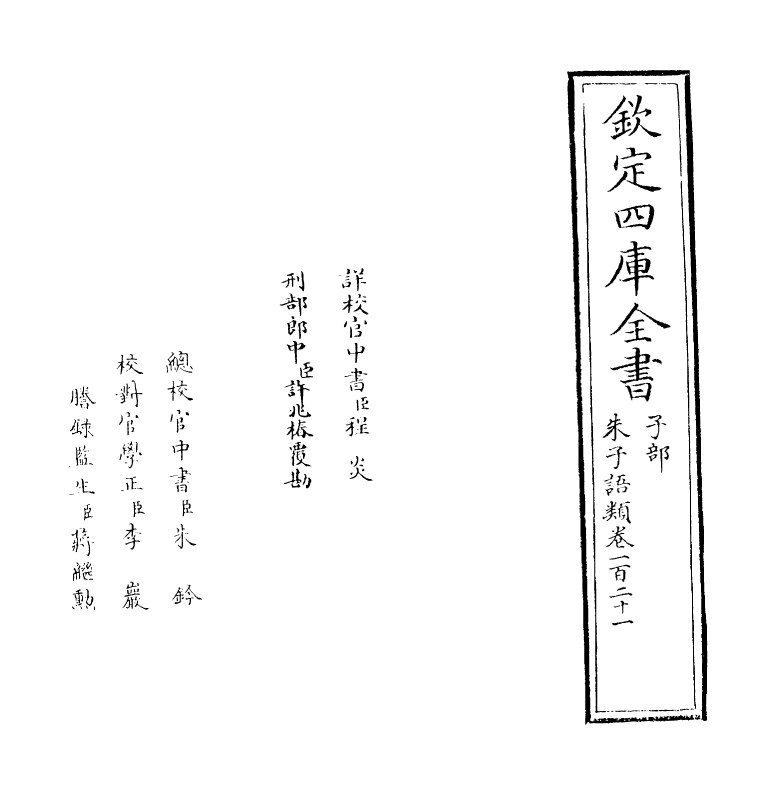 欽定四庫全書
子部
朱子語類卷一百二十一
詳校官中書臣程炎
刑部郎中臣許兆椿覆勘
總校官中書臣朱鈐
校對官學正臣李巖
謄錄監生臣蔣繼勳